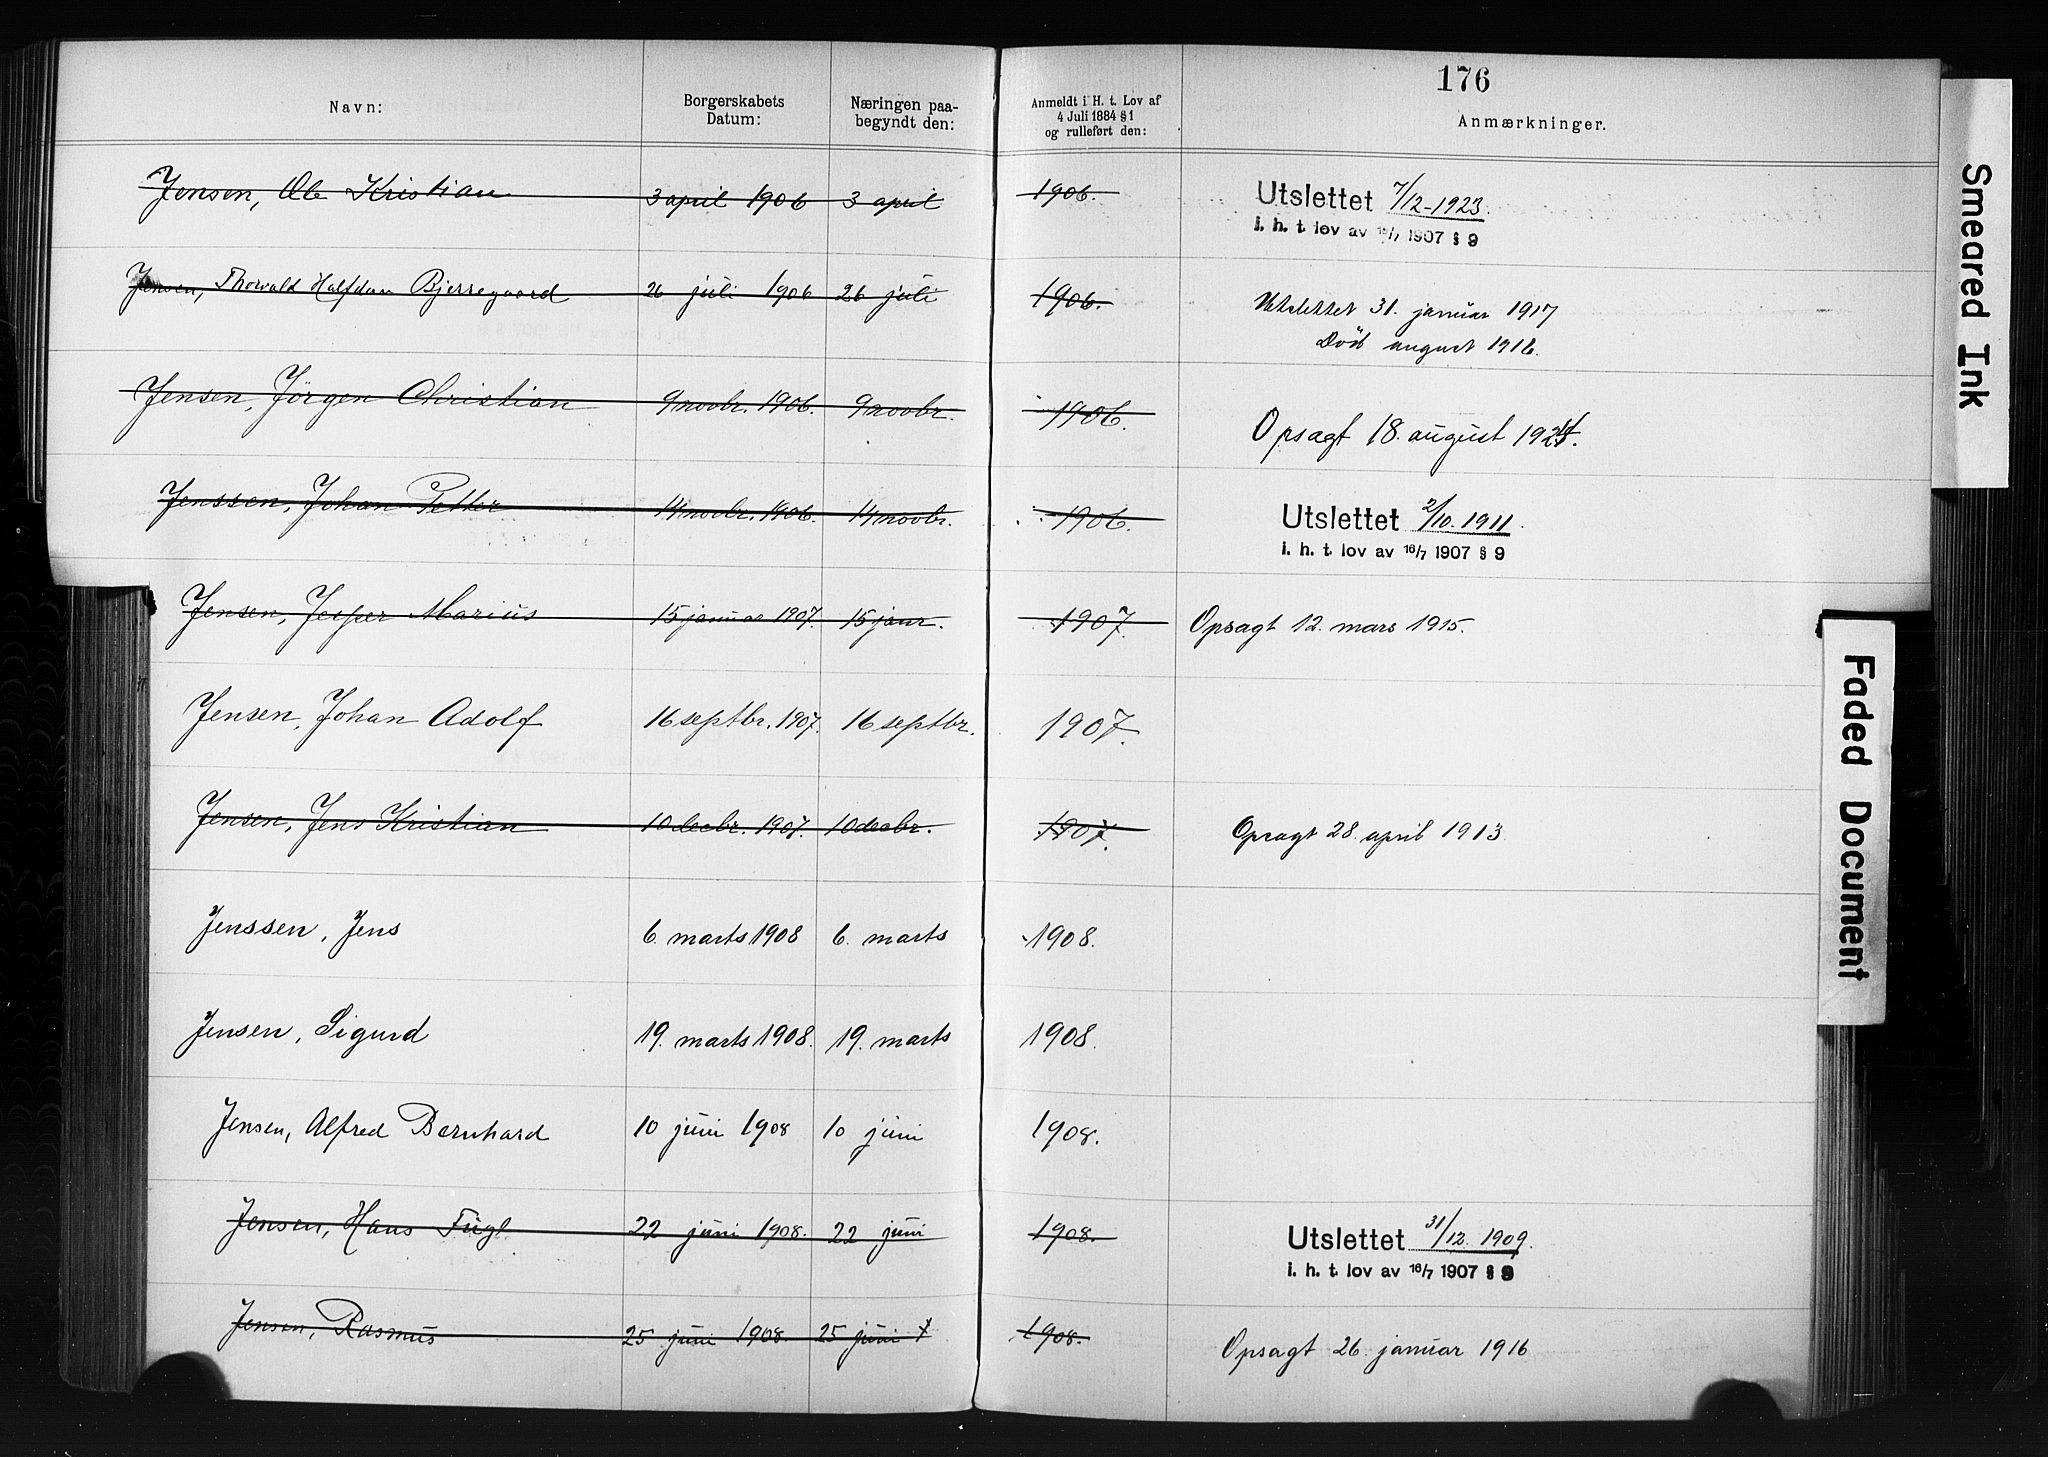 176
Navn:
Borgerskabets Datum:
Næringen paa-begyndt den:
Anmeldt i H. t. Lov af 4 Juli 1884 § 1 og rulleført den:
Anmærkninger.
Jensen, Ole Kristian 3 april 1906 3 april 1906. Utslettet 7/12-1923.
i. h. t. lov av 16/7 1907 § 9
Jensen, Thorvald Halfdan Bjerregaard 26 juli 1906 26 juli 1906. Utslettet 31. januar 1917
Död august 1916.
Jensen, Jörgen Christian 9 novbr. 1906. 9 novbr. 1906. Opsagt 18. august 1924.
Jenssen, Johan Petter 14 novbr. 1906. 14 novbr. 1906. Utslettet 2/10. 1911.
i. h. t. lov av 16/7 1907 § 9
Jensen, Jesper Marius 15 januar 1907. 15 janr. 1907. Opsagt 12. mars 1915.
Jensen, Johan Adolf 16 septbr. 1907. 16 septbr. 1907.
Jensen, Jens Kristian 10 decbr. 1907. 10 decbr. 1907. Opsagt 28. april 1913.
Jenssen, Jens 6. marts 1908 6. marts 1908.
Jensen, Sigurd 19. marts 1908. 19. marts 1908.
Jensen, Alfred Bernhard 10 juni 1908 10 juni 1908.
Jensen, Hans Fugl 22 juni 1908. 22 juni 1908. Utslettet 31/12. 1909.
i. h. t. lov av 16/7 1907 § 9
Jensen, Rasmus 25 juni 1908. 25 juni 1908. Opsagt 26. januar 1916
Smeared Ink
Faded Document